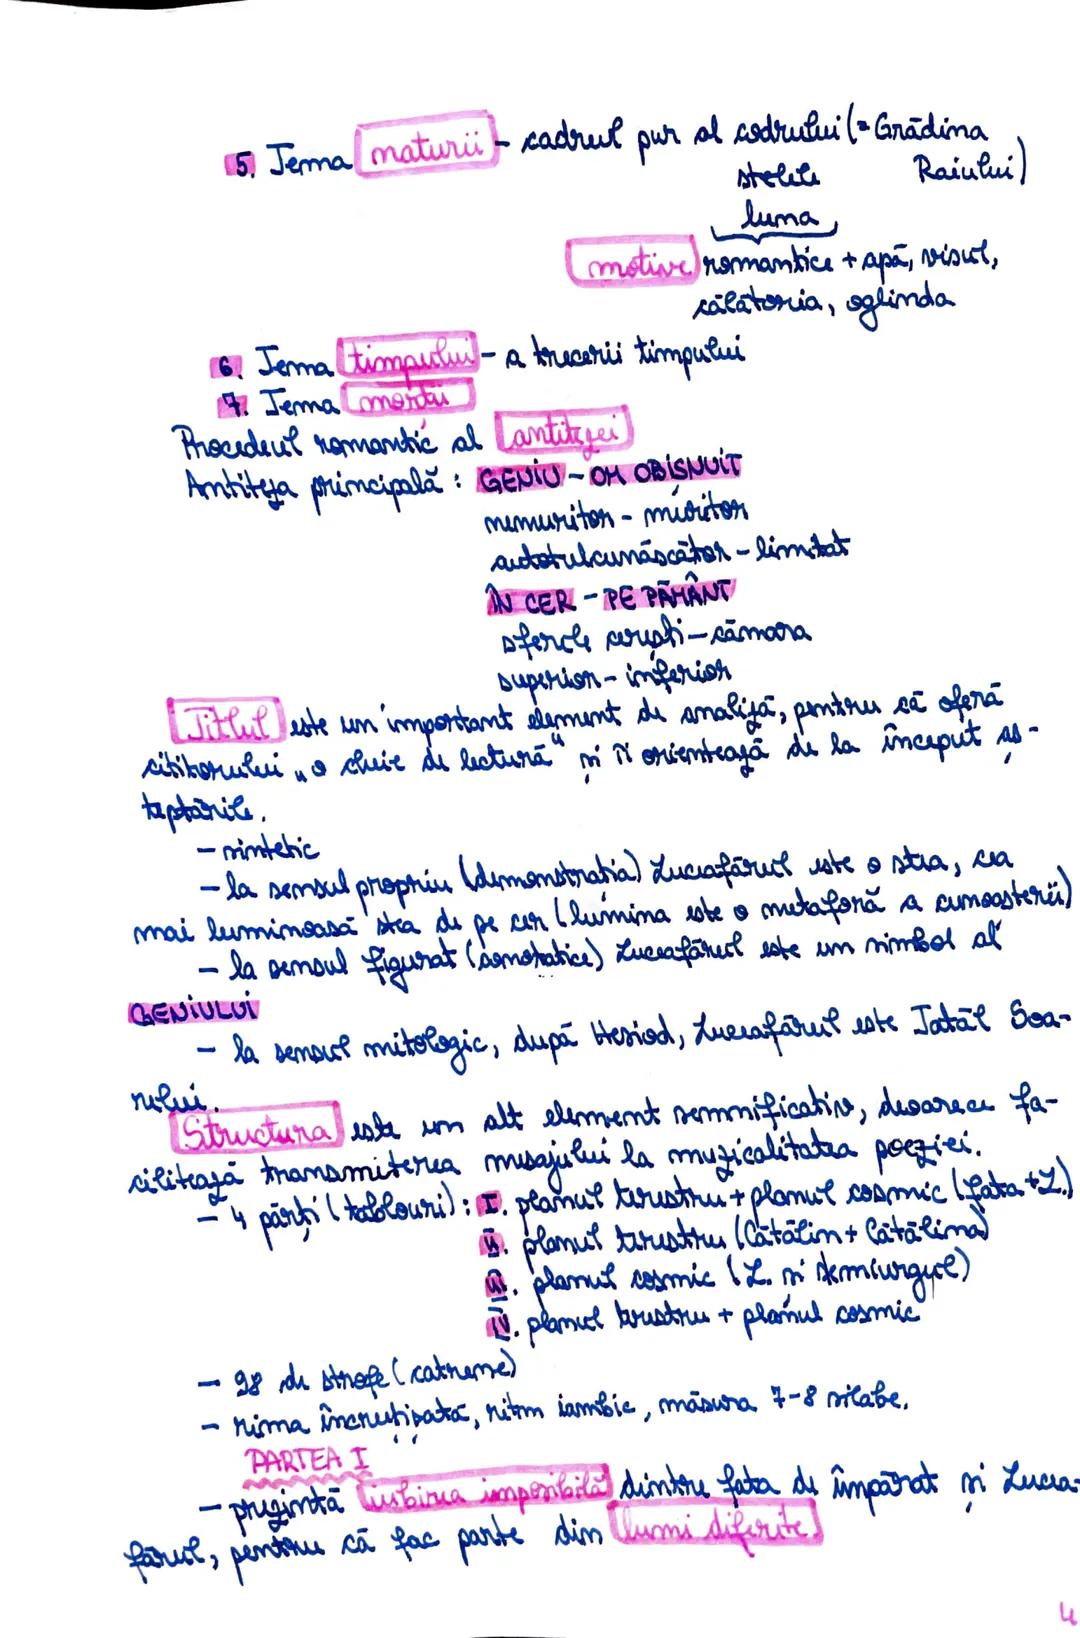 5. Tema naturii - cadrul pur al codrului (= Grădina
stelele Raiului)
luna
motive romantice + apă, visul,
călătoria, oglinda
6. Tema timpului - a trecerii timpului
7. Tema morții
Procedeul romantic al antitezei
Antiteza principală : GENIU - OM OBIȘNUIT
nemuritor - muritor
autotulcunăscător - limitat
ÎN CER - PE PĂMÂNT
sferele cerești - cămara
superior - inferior
Titlul este un important element de analiză, pentru că oferă
cititorului „o cheie de lectură" și îi orientează de la început aș-
teptările.
- sintetic
- la sensul propriu (demonstratia) Luceafărul este o stea, cea
mai luminoasă stea de pe cer (lumina este o metaforă a cunoașterii)
- la sensul figurat (conotatice) Luceafărul este un simbol al
GENIULUI
- la sensul mitologic, după Hesiod, Luceafărul este Tatăl Soa-
relui.
Structura este un alt element semnificativ, deoarece fa-
cilitează transmiterea mesajului la muzicalitatea poeziei.
- 4 părți (tablouri) : I. planul terestru + planul cosmic (fata + L.)
II. planul terestru (Cătălin + Cătălina)
III. planul cosmic (L. și Demiurgul)
IV. planul terestru + planul cosmic
- 98 de strofe (catrene)
- rima încrucișată, ritm iambic, măsura 7-8 silabe.
PARTEA I
- prezintă iubirea imposibilă dintre fata de împărat și Lucea-
fărul, pentru că fac parte din lumi diferite.
4